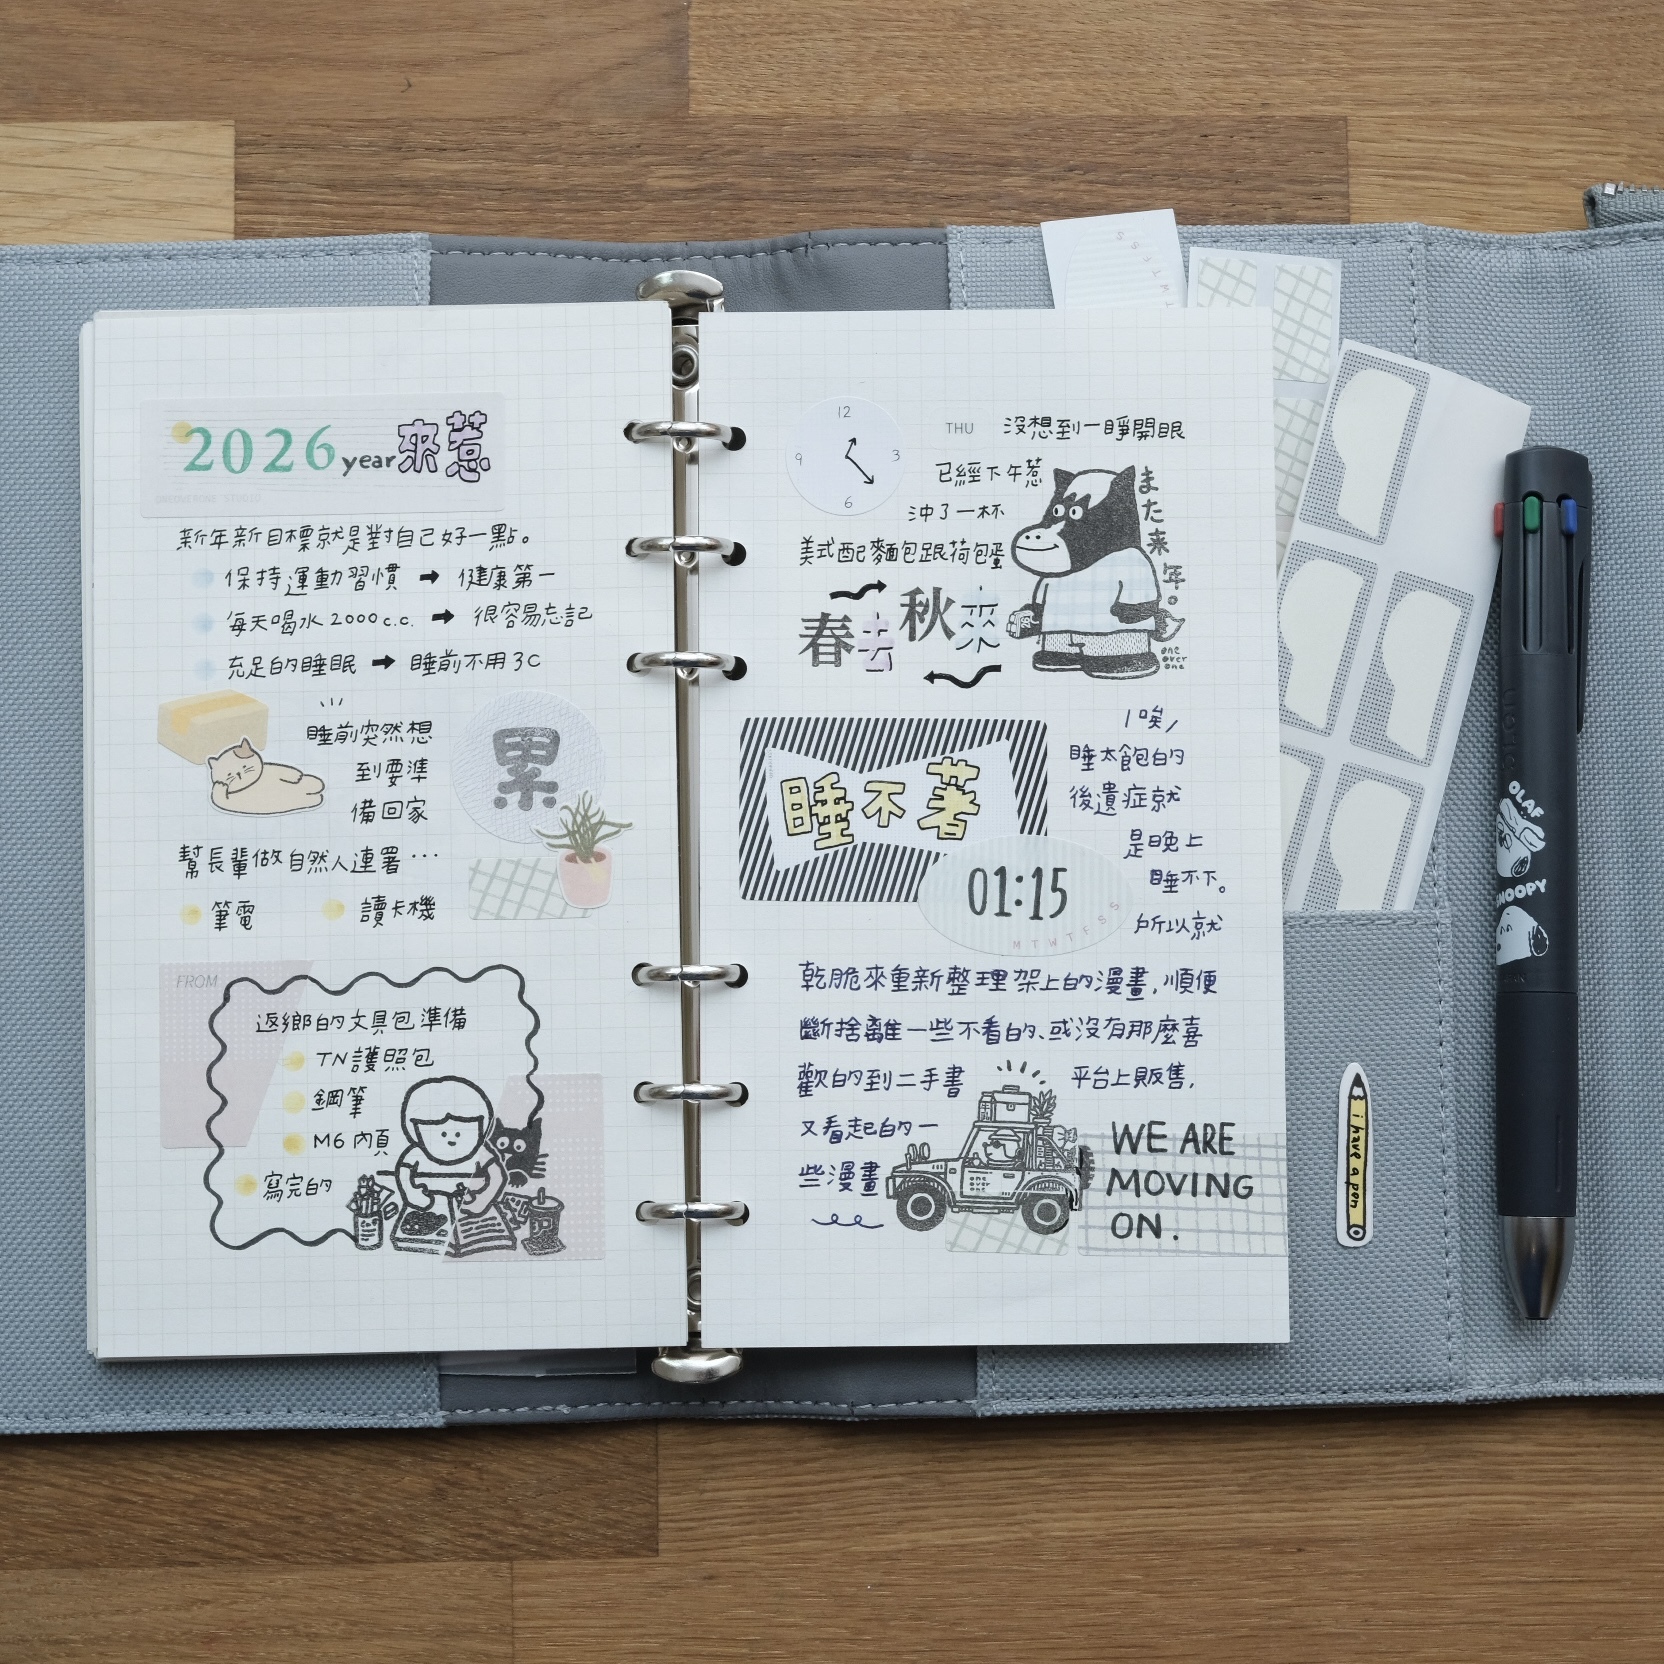 2026 year 來惹
ONEOVERONE STUDIO
新年新目標就是對自己好一點。
保持運動習慣 ➡ 健康第一
每天喝水 2000 c.c. ➡ 很容易忘記
充足的睡眠 ➡ 睡前不用 3C
睡前突然想
到要準
備回家
累
幫長輩做自然人連署…
筆電
讀卡機
FROM
返鄉的文具包準備
TN護照包
鋼筆
M6 內頁
寫完的
12
3
6
9
THU 沒想到一睜開眼
已經下午惹
沖了一杯
美式配麵包跟荷包蛋
また来年。
春去秋來
one
over
one
睡不著
01:15
M T W T F S S
唉
睡太飽的
後遺症就
是晚上
睡不下。
所以就
乾脆來重新整理架上的漫畫,順便
斷捨離一些不看的、或沒有那麼喜
歡的到二手書平台上販售,
又看起的一
些漫畫
one
over
one
WE ARE
MOVING
ON.
i have a pen
OLAF
SNOOPY